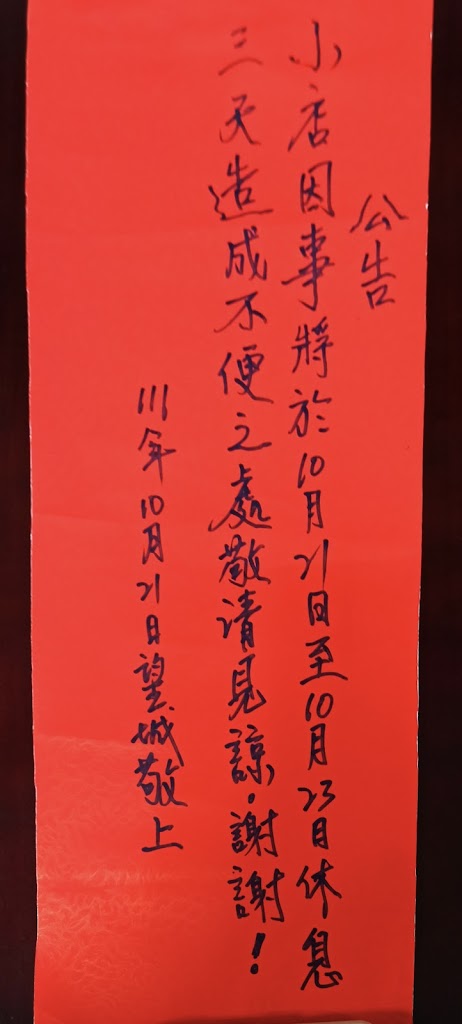 公告
小店因事將於10月21日至10月23日休息
三天造成不便之處敬請見諒．謝謝！
111年10月21日望城敬上